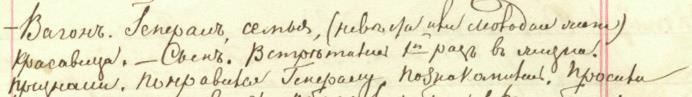 – Вагонъ. Генералъ, семья, (невѣста или молодая жена)
красавица. – Сынъ. Встрѣтились 1й разъ в жизни.
Понравился Генералу. Познакомились. Просили